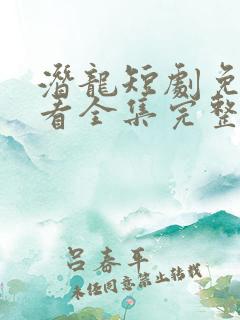 潛龍短劇免
看全集完整
呂春平
未經同意禁止转载